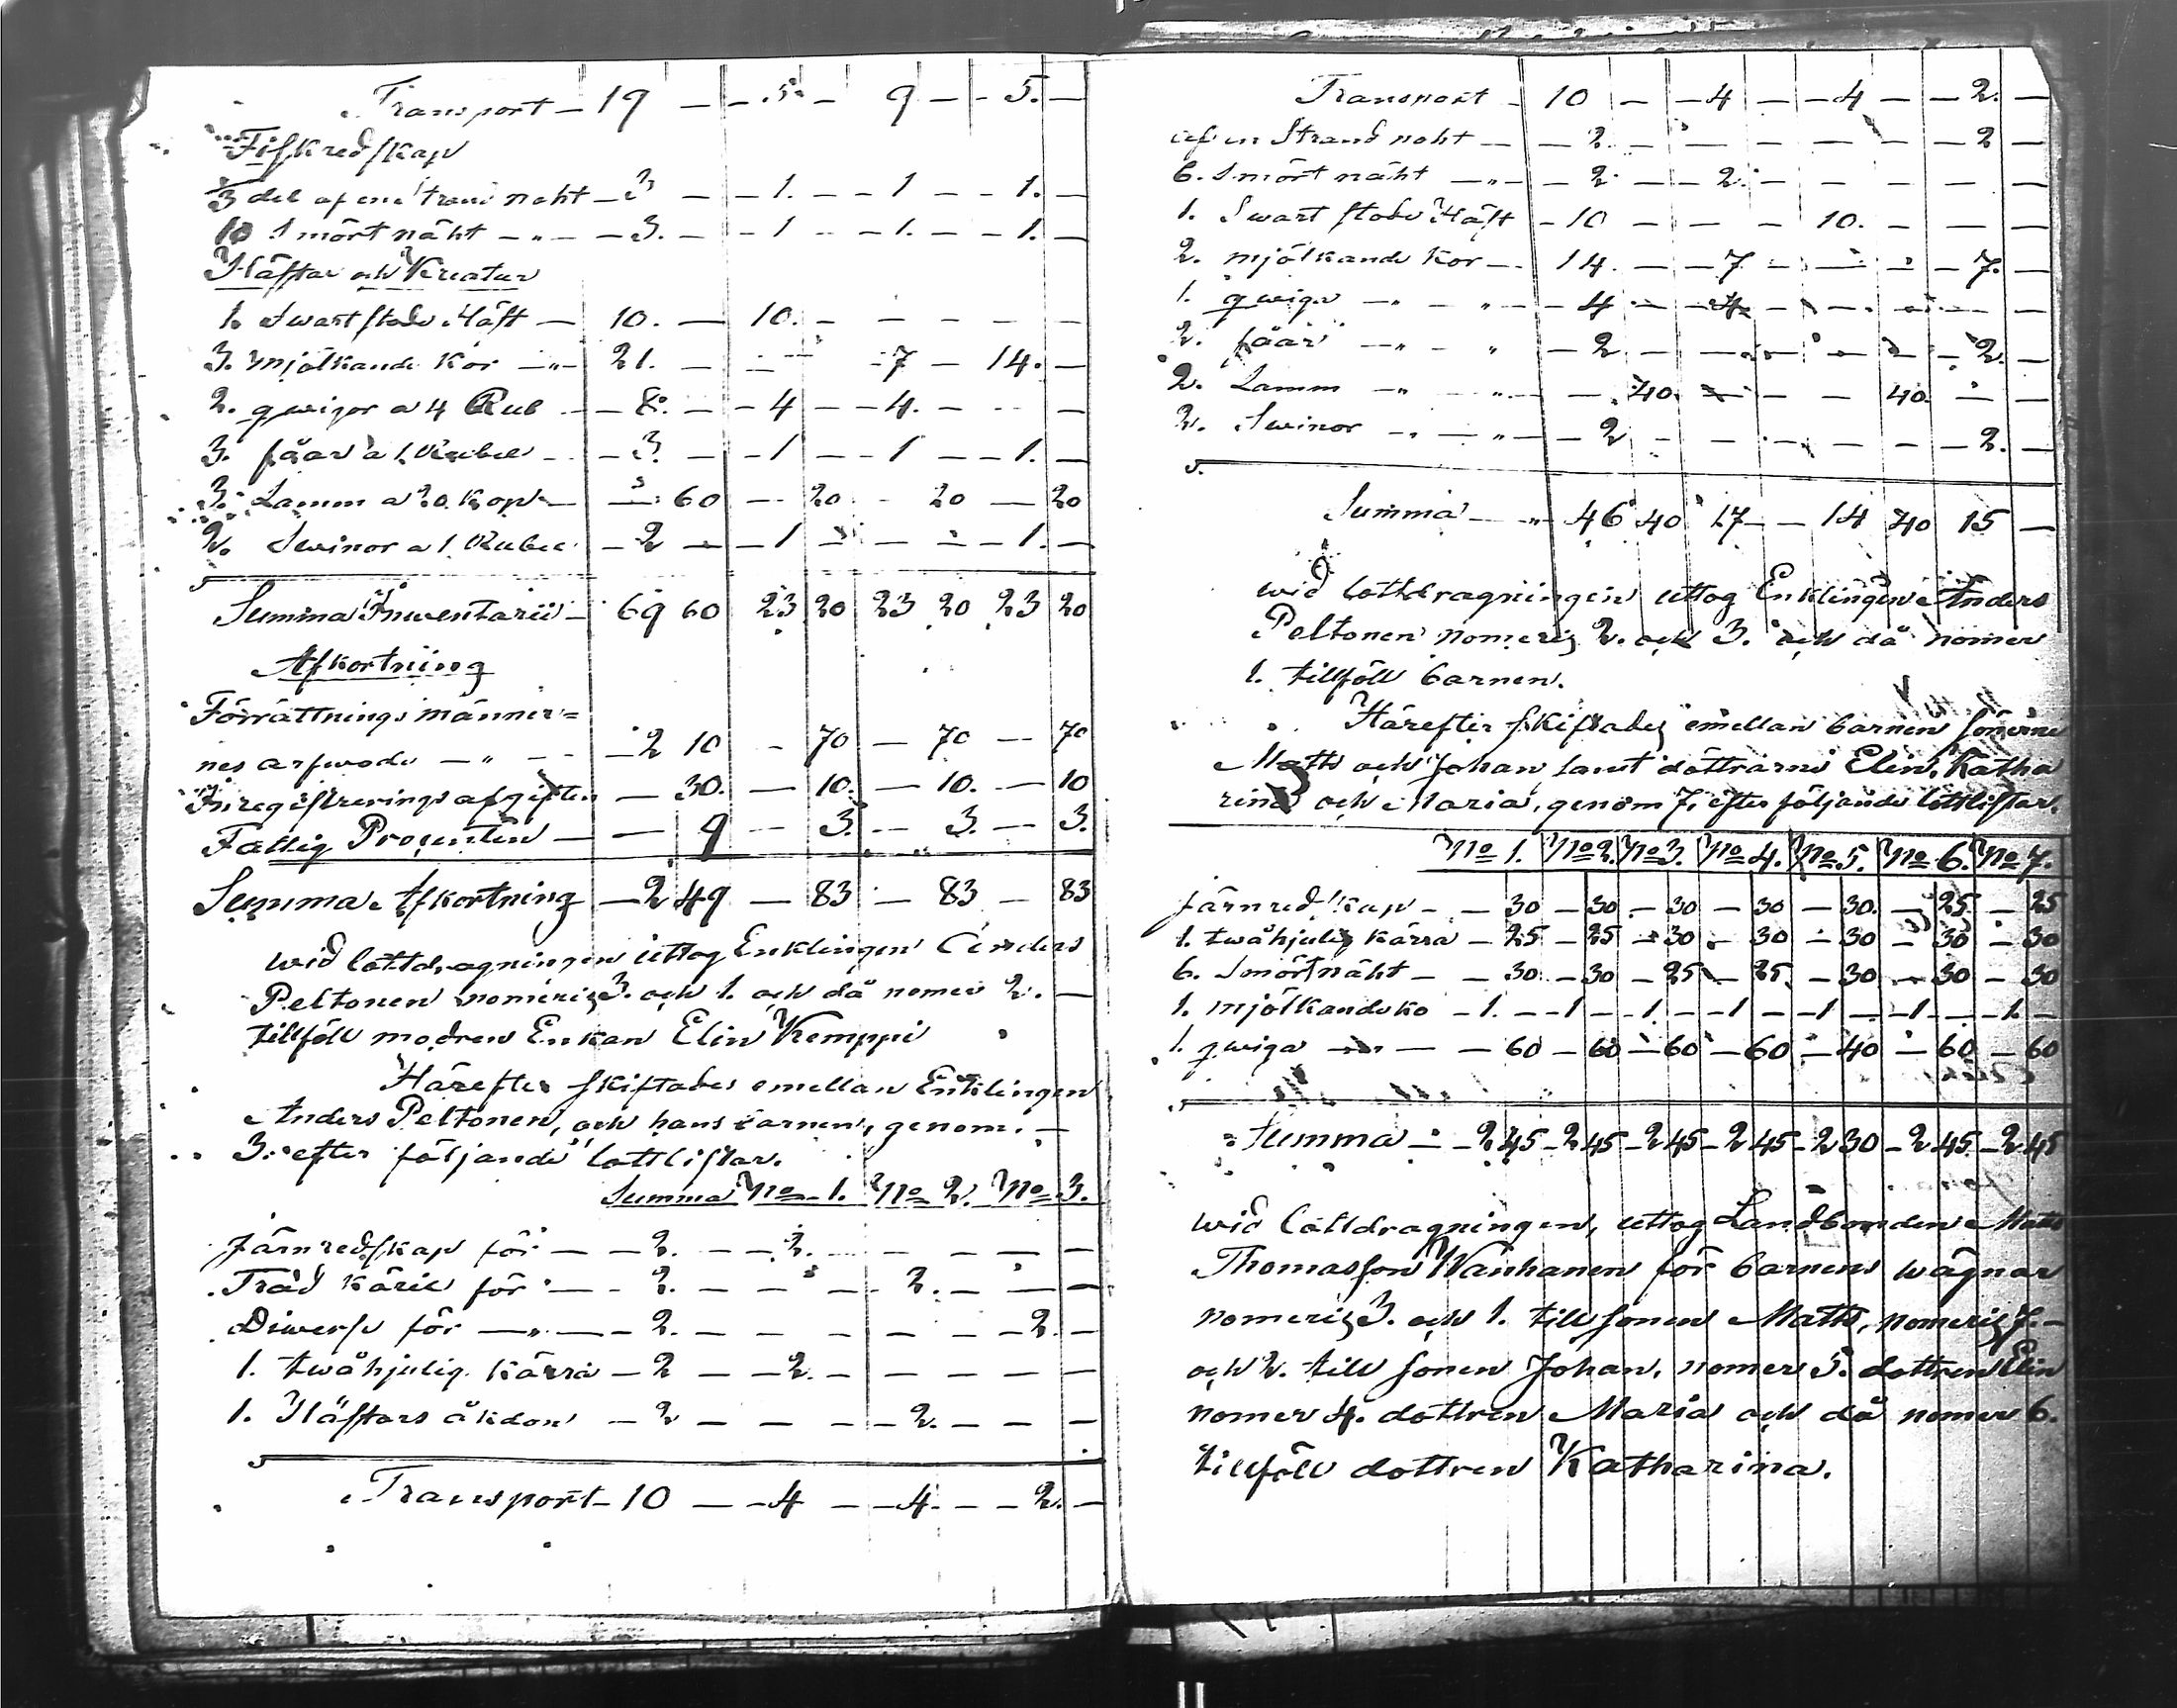 Transport – 19 – – 5 – 9 – – 5. –
Fiskredskap
1/3 del af en strand noht – 3 – – 1. – – 1 – – 1. –
10 Smört näht – „ – – 3. – – 1 – – 1. – – 1. –
Hästar och Kreatur
1. Swart stodv Häst – 10. – 10. – – – – –
3. mjölkande Kor – „ – 21. – – – – 7 – 14. –
2. qwigor a 4 Rub – – 8. – – 4 – – 4. – – – –
3. fåar a 1. Rubel – – 3. – – 1 – – 1 – – 1. –
3. Lamm a 20. Kop – – 60 – 20 – 20 – 20
2. Swinor a 1. Rubel – 2 – – 1 – – – – 1. –
Summa Inwentarii – 69 60 23 20 23 20 23 20
Afkortning
Förrättnings männer=
nes arfwode – „ – – – 2 10 – 70 – 70 – 70
Inregistrerings afgiften – 30. – 10. – 10. – 10
Fattig Procenten – – 9 – 3. – 3. – 3.
Summa Afkortning – 2 49 – 83 – 83 – 83
wid lottdragningen uttog Enklingen Anders
Peltonen nomeriz 3. och 1. och då nomer 2. –
tillföll modren Enkan Elin Kemppi
Härefter skiftades emellan Enklingen
Anders Peltonen, och hans barnen, genom. –
3. efter följande lottlistar.
Summa No 1. No 2. No 3.
Järnredskap för – – 2. – – 2. – – – – –
Träd Käril för – – 2. – – – – 2. – – –
Diwerse för – „ – – 2. – – – – – – 2. –
1. twåhjulig. Kärra – 2 – – 2. – – – – –
1. Hästars åkdon – 2 – – – – 2. – – –
Transport – 10 – – 4 – – 4. – – 2. –
Transport – 10 – – 4 – – 4 – – 2. –
af en Strand noht – – 2. – – – – – – 2 –
6. Smört näht – „ – – 2. – – 2. – – – – –
1. Swart stodv Häst – 10 – – – 10. – – –
2. mjölkande Kor – 14. – – 7 – – – – 7. –
1. qwiga – „ – „ – – 4 – – 4 – – – – –
2. fåar – „ – „ – 2 – – – – – – 2. –
2. Lamm – „ – „ – – 40. – – – 40. – –
2. Swinor – „ – „ – – 2 – – – – – – 2. –
Summa – „ 46 40 17 – – 14 40 15 –
wid lottdragningen uttog Enklingen Anders
Peltonen nomeriz 2. och 3. och då nomer
1. tillföll barnen.
Härefter skiftadez emellan barnen sönerne
Matts och Johan samt döttrarne Elin, Katha
rina och Maria, genom 7. efter följande lottlistar.
No 1. No 2. No 3. No 4. No 5. No 6. No 7.
Järnredskap – – 30 – 30 – 30 – 30 – 30. – 25 – 25
1. twåhjulig kärra – 25 – 25 – 30 – 30 – 30 – 30 – 30
6. Smörtnäht – – 30 – 30 – 25 – 25. – 30 – 30 – 30
1. mjölkande ko – 1. – – 1 – – 1. – – 1 – – 1 – – 1 – – 1. –
1. qwiga – „ – – 60 – 60 – 60 – 60 – 40 – 60 – 60
Summa – – 2 45 – 2 45 – 2 45 – 2 45 – 2 30 – 2 45 – 2 45
wid lottdragningen, uttog Landbonden Matts
Thomasson Wanhanen för barnens wägnar
nomeriz 3. och 1. till sonen Matts, nomeriz 7. –
och 2. till sonen Johan, nomer 5. dottren Elin
nomer 4. dottren Maria och då nomer 6.
tillföll dottren Katharina.